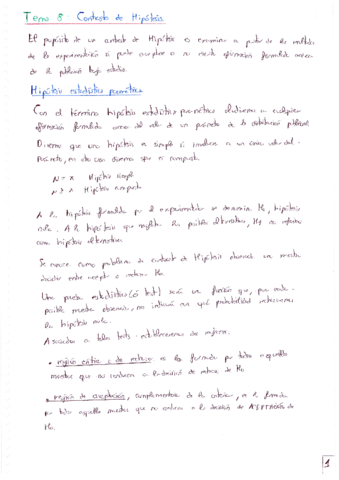 Tema 8 Contraste de Hipótesis
El propósito de un contraste de Hipótesis es examinar a partir de los resultados
de la experimentación si puede aceptarse o no cierta afirmación formulada acerca
de la población bajo estudio.
Hipótesis estadística paramétrica
Con el término hipótesis estadística paramétrica aludiremos a cualquier
afirmación formulada acerca del valor de un parámetro de la distribución poblacional
Diremos que una hipótesis es simple si involucra a un único valor del
parámetro, en otro caso diremos que es compuesta.
Hipótesis simple
Hipótesis compuesta
A la hipótesis formulada por el experimentador se denomina H₀, hipótesis
nula. A la hipótesis que refleja las posibles alternativas, H₁ se
como hipótesis alternativa.
Se conoce como problema de contraste de Hipótesis
decidir entre aceptar o rechazar H₀
Una prueba estadística (ó test) será una función que, para cada
posible muestra observada, nos indicará con qué probabilidad rechazamos
la hipótesis nula.
Asociadas a estos tests establecemos dos regiones.
• región crítica o de rechazo es la formada por todas aquellas
muestras que nos conducen a la decisión de rechazo de H₀
• región de aceptación, complementaria de la anterior, es la formada
por todas aquellas muestras que nos conducen a la decisión de ACEPTACIÓN de
H₀.
1